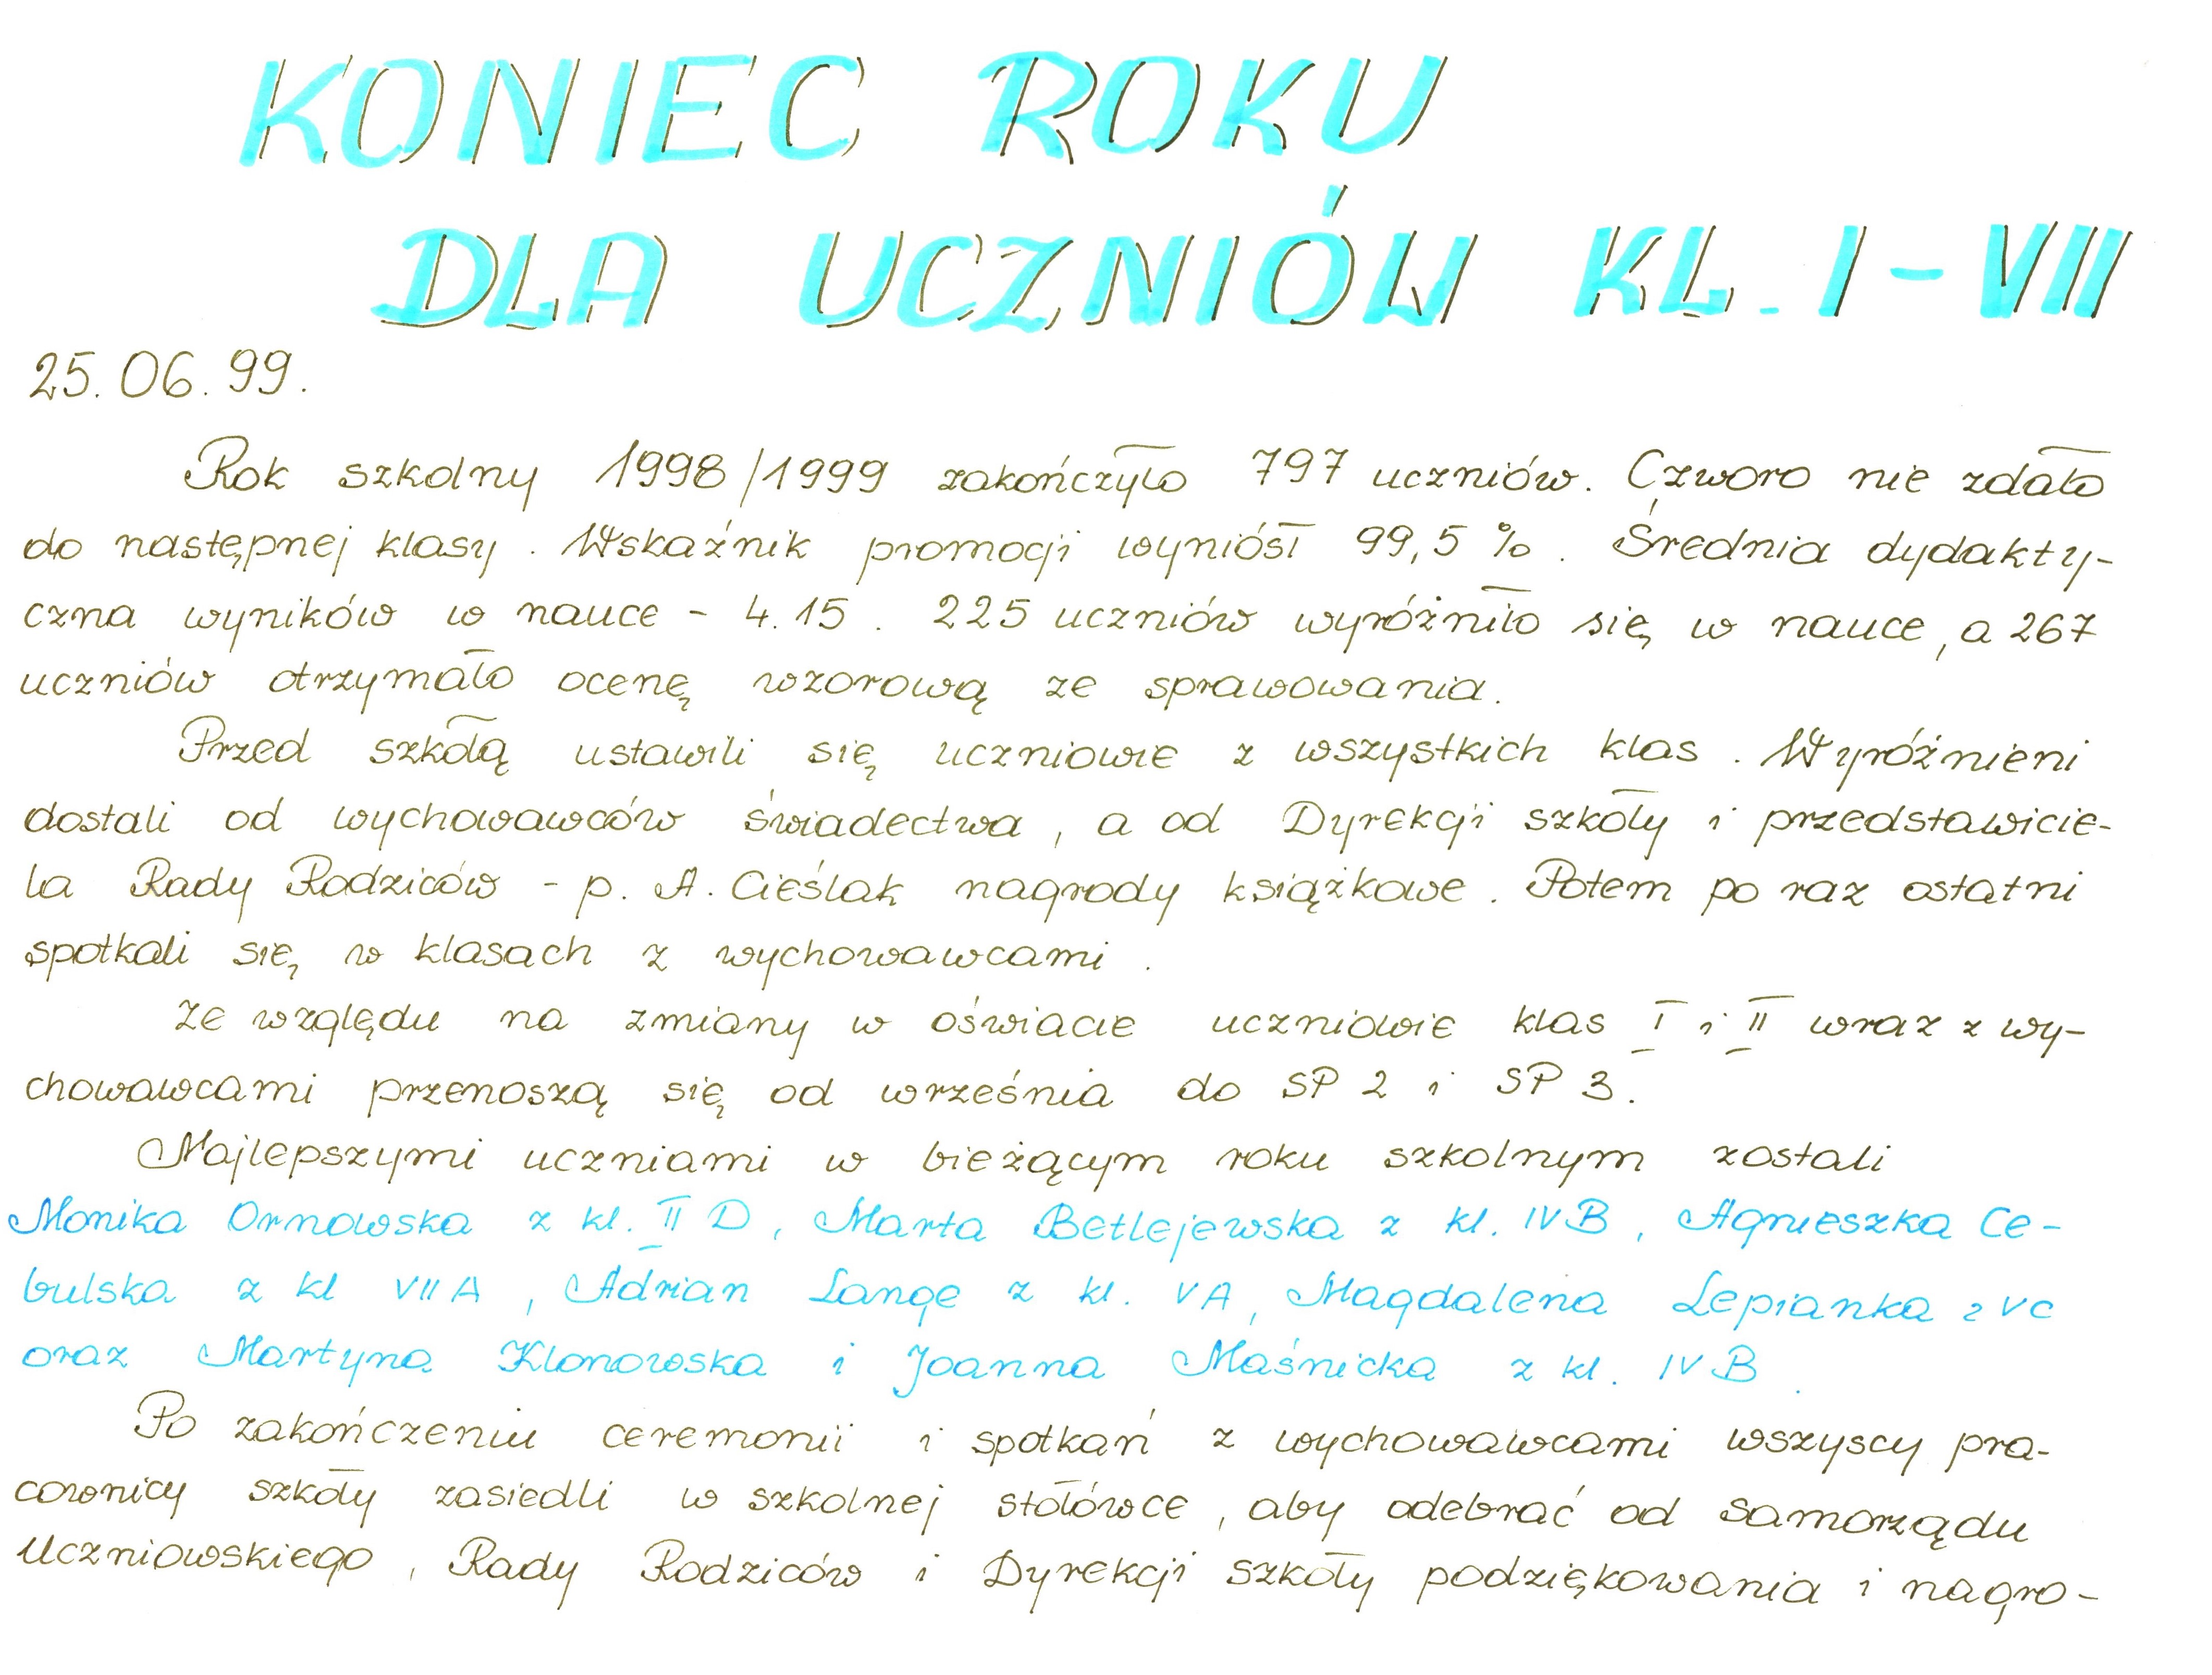 KONIEC ROKU
DLA UCZNIÓW KL. I-VII
25.06.99.
Rok szkolny 1998/1999 zakończyło 797 uczniów. Czworo nie zdało
do następnej klasy. Wskaźnik promocji wyniósł 99,5%. Średnia dydakty-
czna wyników w nauce - 4.15. 225 uczniów wyróżniło się w nauce, a 267
uczniów otrzymało ocenę wzorową ze sprawowania.
Przed szkołą ustawili się uczniowie z wszystkich klas. Wyróżnieni
dostali od wychowawców świadectwa, a od Dyrekcji szkoły i przedstawicie-
la Rady Rodziców - p. A. Cieślak nagrody książkowe. Potem po raz ostatni
spotkali się w klasach z wychowawcami.
Ze względu na zmiany w oświacie uczniowie klas I i II wraz z wy-
chowawcami przenoszą się od września do SP 2 i SP 3.
Najlepszymi uczniami w bieżącym roku szkolnym zostali
Monika Ornowska z kl. II D, Marta Betlejewska z kl. IV B, Agnieszka Ce-
bulska z kl VII A, Adrian Lange z kl. V A, Magdalena Lepianka z V C
oraz Martyna Klonowska i Joanna Maśnicka z kl. IV B.
Po zakończeniu ceremonii i spotkań z wychowawcami wszyscy pra-
cownicy szkoły zasiedli w szkolnej stołówce, aby odebrać od samorządu
Uczniowskiego, Rady Rodziców i Dyrekcji szkoły podziękowania i nagro-